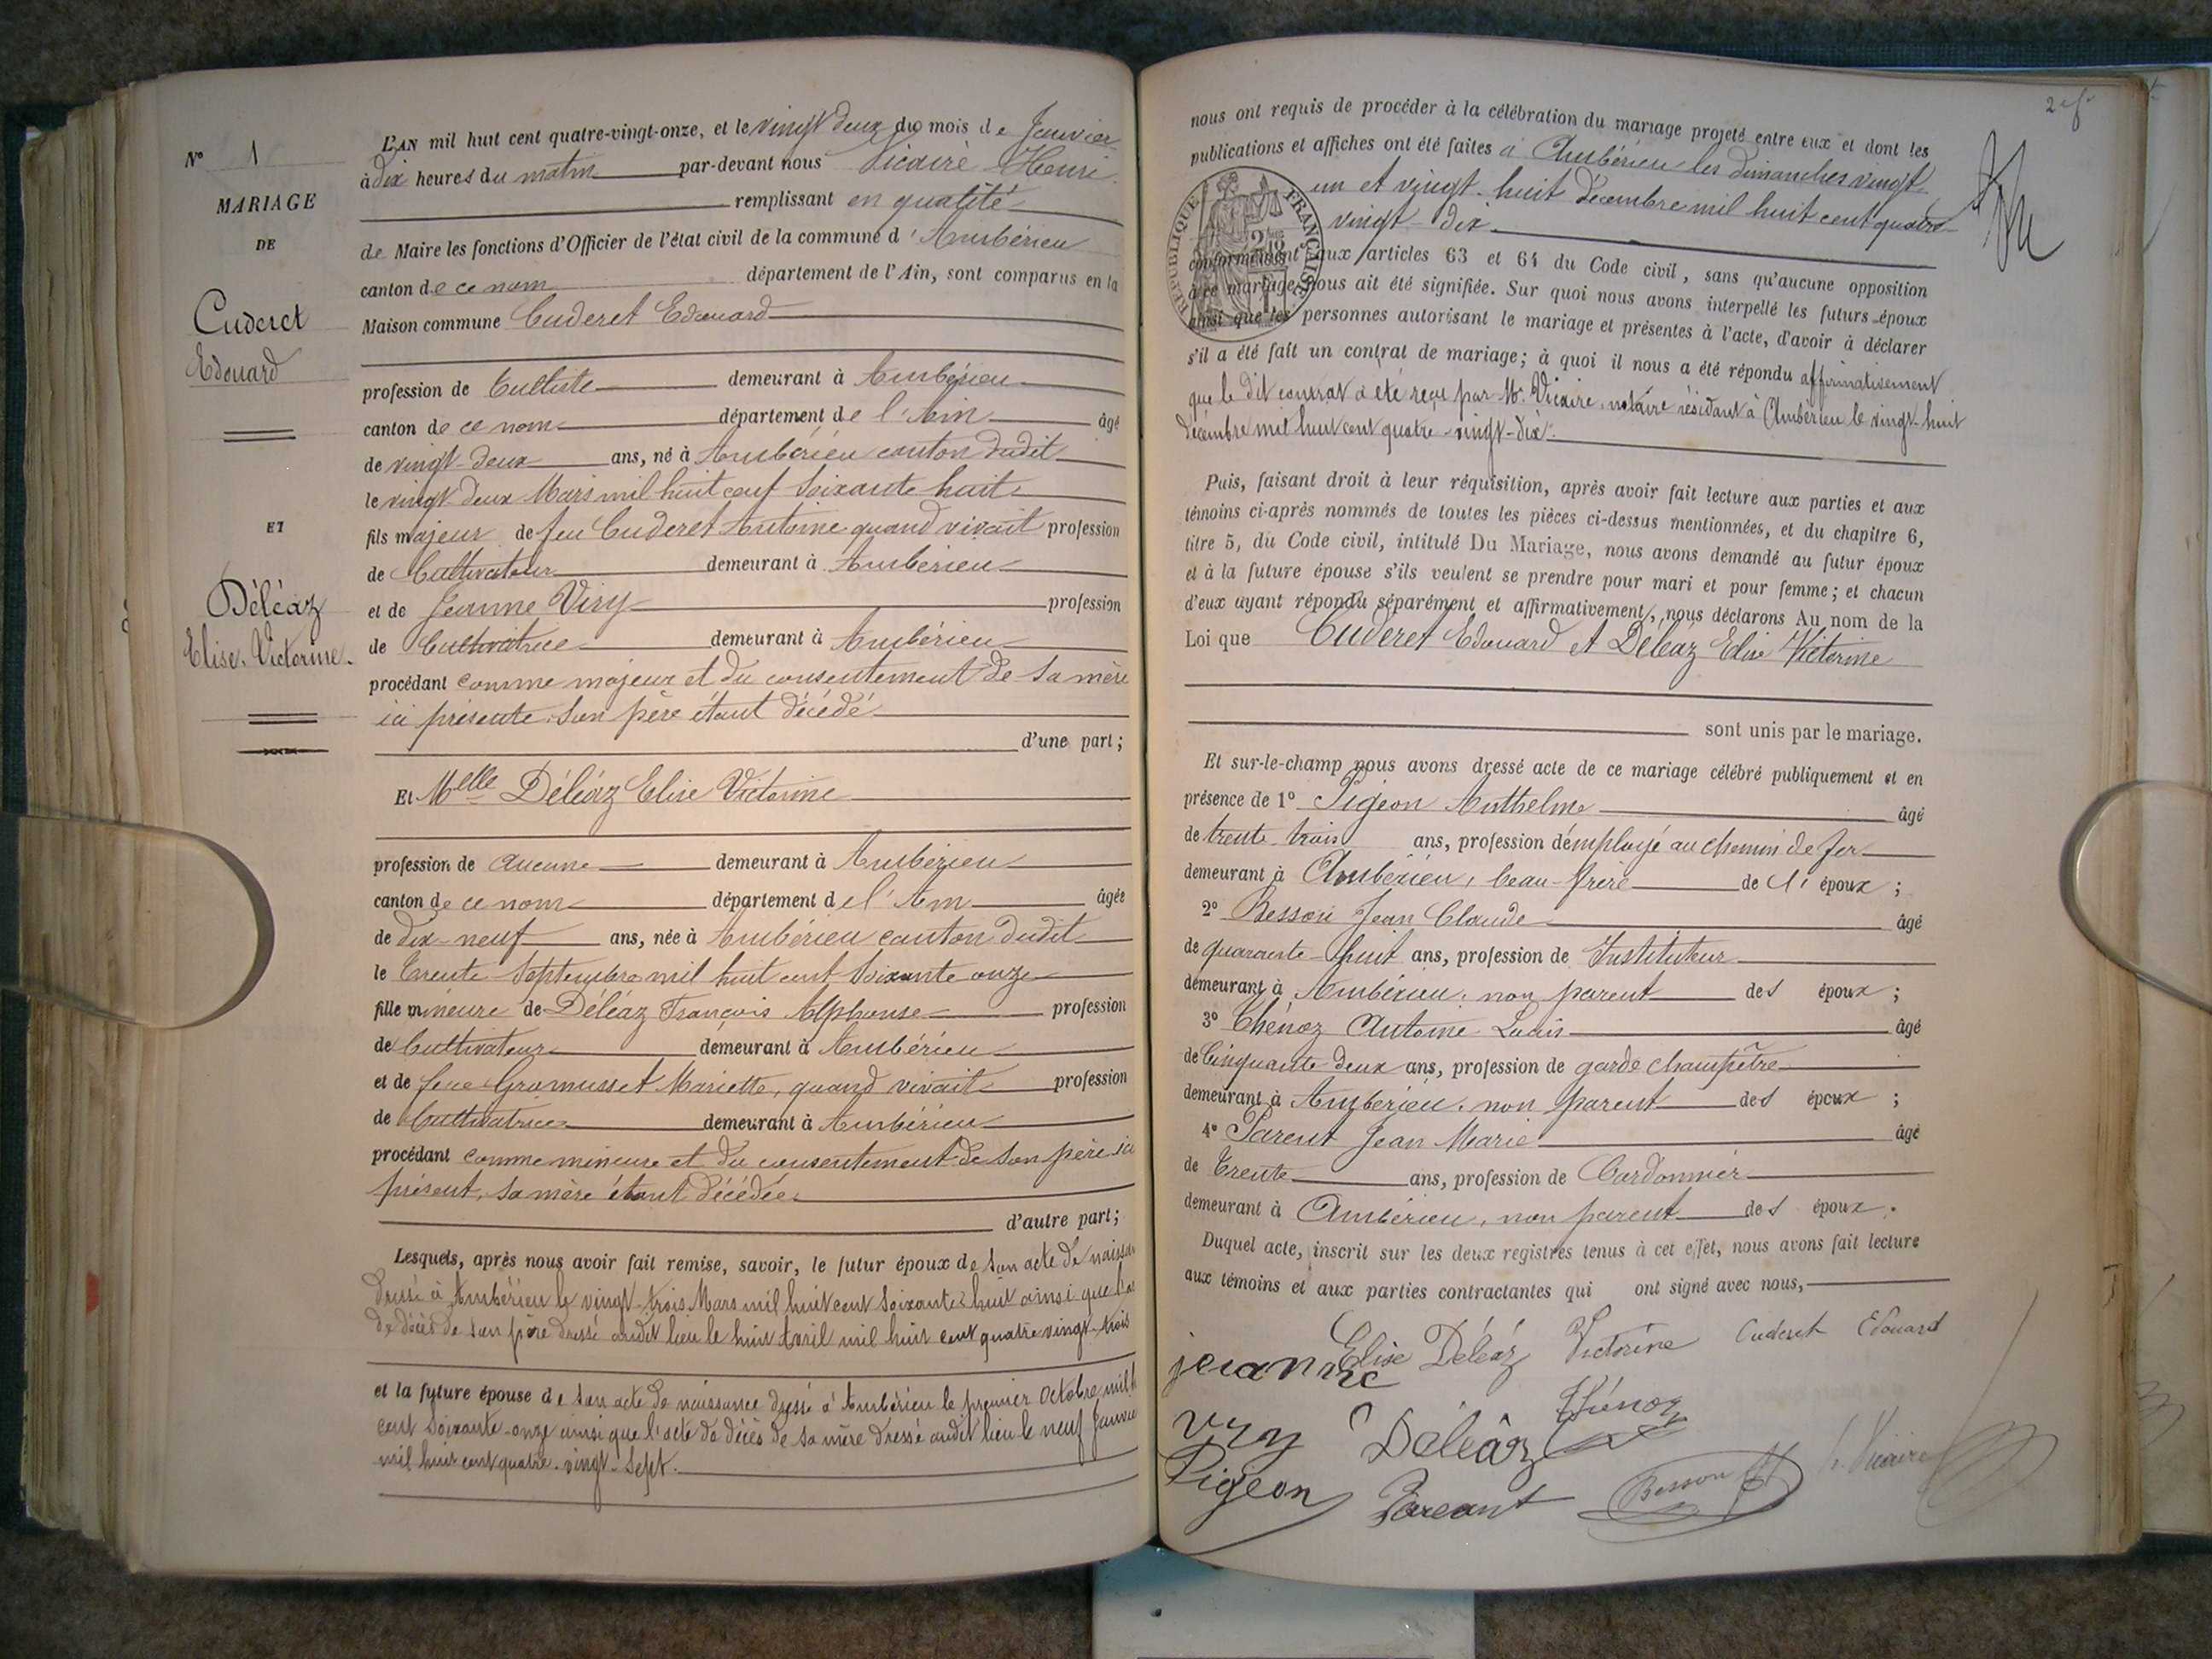 N° 1
MARIAGE
DE
Cuderet
Edouard
ET
Déléaz
Elise. Victorine.
L'AN mil huit cent quatre-vingt-onze, et le vingt deux du mois de Janvier
à dix heures du matin par-devant nous Vicaire Henri
remplissant en qualité
de Maire les fonctions d'Officier de l'état civil de la commune d'Ambérieu
canton de ce nom département de l'Ain, sont comparus en la
Maison commune Cuderet Edouard
profession de Cultiv demeurant à Ambérieu
canton de ce nom département de l'Ain âgé
de vingt-deux ans, né à Ambérieu canton dudit
le vingt deux Mars mil huit cent soixante huit
fils majeur de feu Cuderet Antoine quand vivait profession
de Cultivateur demeurant à Ambérieu
et de Jeanne Viry profession
de Cultivatrice demeurant à Ambérieu
procédant comme majeur et du consentement de sa mère
ici présente. Son père étant décédé
d'une part;
Et Melle Déléaz Elise Victorine
profession de aucune demeurant à Ambérieu
canton de ce nom département de l'Ain âgée
de dix-neuf ans, née à Ambérieu canton dudit
le trente Septembre mil huit cent soixante onze
fille mineure de Déléaz François Alphonse profession
de Cultivateur demeurant à Ambérieu
et de feue Gromusset Mariette, quand vivait profession
de Cultivatrice demeurant à Ambérieu
procédant comme mineure et du consentement de son père ici
présent, sa mère étant décédée
d'autre part;
Lesquels, après nous avoir fait remise, savoir, le futur époux de son acte de
dressé à Ambérieu le vingt-trois Mars mil huit cent soixante huit ainsi que
de décès de son père dressé audit lieu le huit Avril mil huit cent quatre vingt-trois
et la future épouse de son acte de naissance dressé à Ambérieu le premier Octobre mil
cent soixante-onze ainsi que l'acte de décès de sa mère dressé audit lieu le neuf Janvier
mil huit cent quatre-vingt-sept.
nous ont requis de procéder à la célébration du mariage projeté entre eux et dont les
publications et affiches ont été faites à Ambérieu les dimanches vingt
un et vingt-huit décembre mil huit cent quatre
vingt-dix
RÉPUBLIQUE FRANÇAISE
conformément aux articles 63 et 64 du Code civil, sans qu'aucune opposition
à ce mariage nous ait été signifiée. Sur quoi nous avons interpellé les futurs époux
ainsi que les personnes autorisant le mariage et présentes à l'acte, d'avoir à déclarer
s'il a été fait un contrat de mariage; à quoi il nous a été répondu affirmativement
que le dit contrat a été reçu par Me Vicaire, notaire résidant à Ambérieu le vingt-huit
décembre mil huit cent quatre-vingt-dix.
Puis, faisant droit à leur réquisition, après avoir fait lecture aux parties et aux
témoins ci-après nommés de toutes les pièces ci-dessus mentionnées, et du chapitre 6,
titre 5, du Code civil, intitulé Du Mariage, nous avons demandé au futur époux
et à la future épouse s'ils veulent se prendre pour mari et pour femme; et chacun
d'eux ayant répondu séparément et affirmativement, nous déclarons Au nom de la
Loi que Cuderet Edouard et Déléaz Elise Victorine
sont unis par le mariage.
Et sur-le-champ nous avons dressé acte de ce mariage célébré publiquement et en
présence de 1° Pigeon Anthelme âgé
de trente trois ans, profession d'employé au chemin de fer
demeurant à Ambérieu, beau-frère de l'époux ;
2° Besson Jean Claude âgé
de quarante-huit ans, profession de Instituteur
demeurant à Ambérieu, non parent des époux ;
3° Thénoz Antoine Louis âgé
de Cinquante-deux ans, profession de garde champêtre
demeurant à Ambérieu, non parent des époux ;
4° Parent Jean Marie âgé
de trente ans, profession de Cordonnier
demeurant à Ambérieu, non parent des époux.
Duquel acte, inscrit sur les deux registres tenus à cet effet, nous avons fait lecture
aux témoins et aux parties contractantes qui ont signé avec nous,
Elise Déléaz Victorine Cuderet Edouard
jeanne
viry Déléaz Thénoz
Pigeon Pareant Besson h. Vicaire